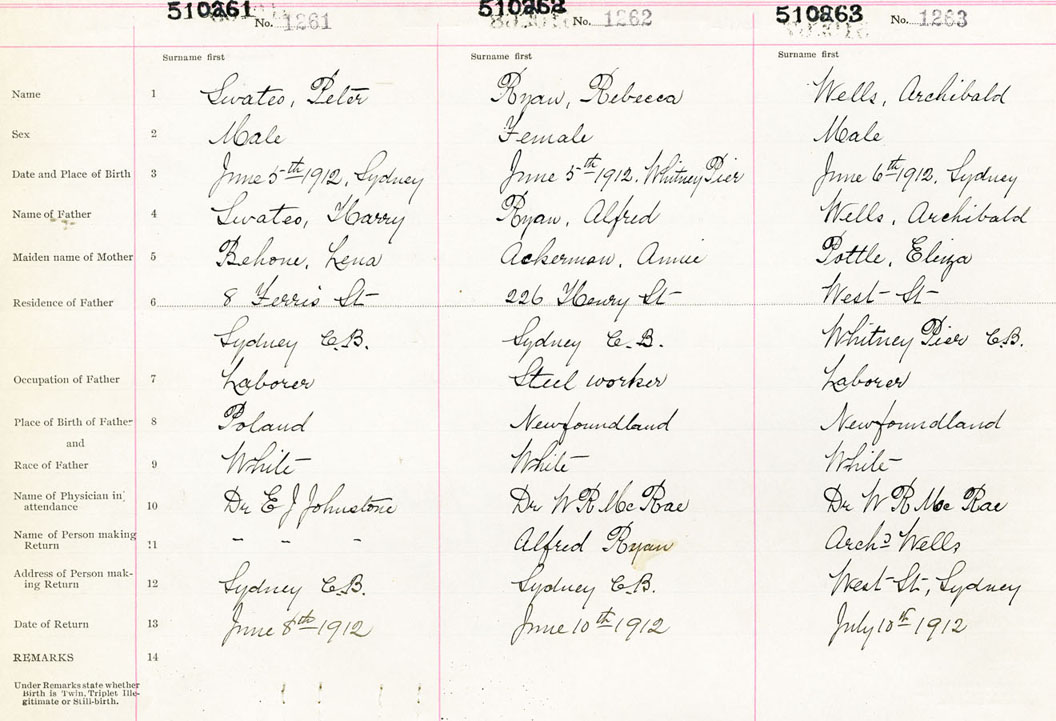 510261 No. 1261 510262 No. 1262 510263 No. 1263
Surname first Surname first Surname first
Name 1 Swateo, Peter Ryan, Rebecca Wells, Archibald
Sex 2 Male Female Male
Date and Place of Birth 3 June 5th 1912, Sydney June 5th 1912. Whitney Pier June 6th 1912. Sydney
Name of Father 4 Swateo, Harry Ryan, Alfred Wells, Archibald
Maiden name of Mother 5 Behone, Lena Ackerman, Annie Pottle, Eliza
Residence of Father 6 8 Ferris St 226 Henry St West St
Sydney C.B. Sydney C.B. Whitney Pier C.B.
Occupation of Father 7 Laborer Steel worker Laborer
Place of Birth of Father 8 Poland Newfoundland Newfoundland
and
Race of Father 9 White White White
Name of Physician in
attendance 10 Dr E J Johnstone Dr W R McRae Dr W R McRae
Name of Person making
Return 11 - - - Alfred Ryan Archd Wells
Address of Person mak-
ing Return 12 Sydney C.B. Sydney C.B. West St, Sydney
Date of Return 13 June 8th 1912 June 10th 1912 July 10th 1912
REMARKS 14
Under Remarks state whether
Birth is Twin, Triplet Ille-
gitimate or Still-birth.